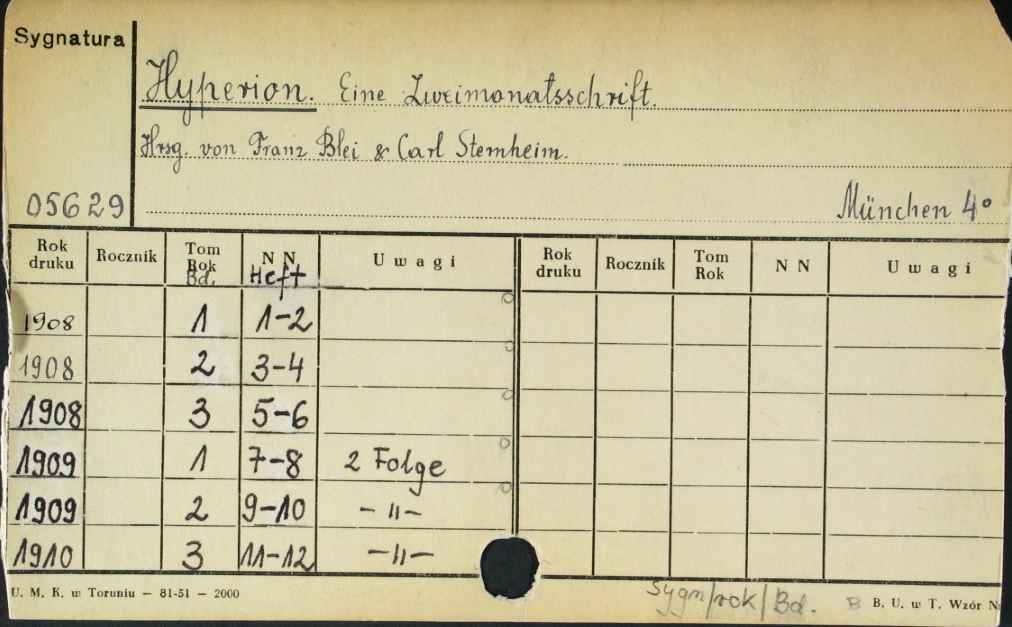 Sygnatura
Hyperion. Eine Zweimonatsschrift.
Hrsg. von Franz Blei & Carl Sternheim.
05629
München 4°
Rok druku Rocznik Tom Rok Bd. N N Heft Uwagi Rok druku Rocznik Tom Rok N N Uwagi
1908 1 1-2
1908 2 3-4
1908 3 5-6
1909 1 7-8 2 Folge
1909 2 9-10 - 11 -
1910 3 11-12 - 11 -
U. M. K. w Toruniu - 81-51 - 2000
Sygn/rok/Bd.
B B. U. w T. Wzór